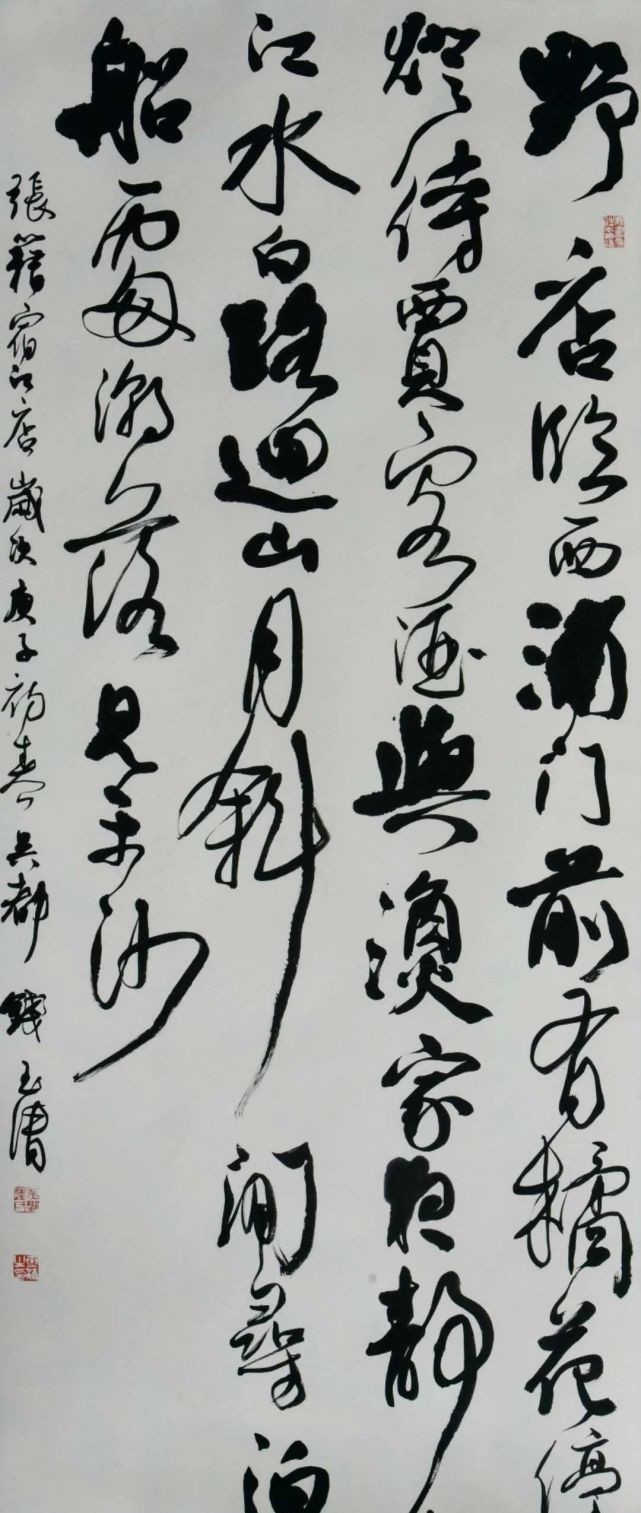 野店臨西浦门前有橘花停
燈待賈客酒與漁家夜靜
江水白路迴山月斜閒尋泊
船處潮落見平沙
張籍宿江店歲次庚子初春吳都錢玉清